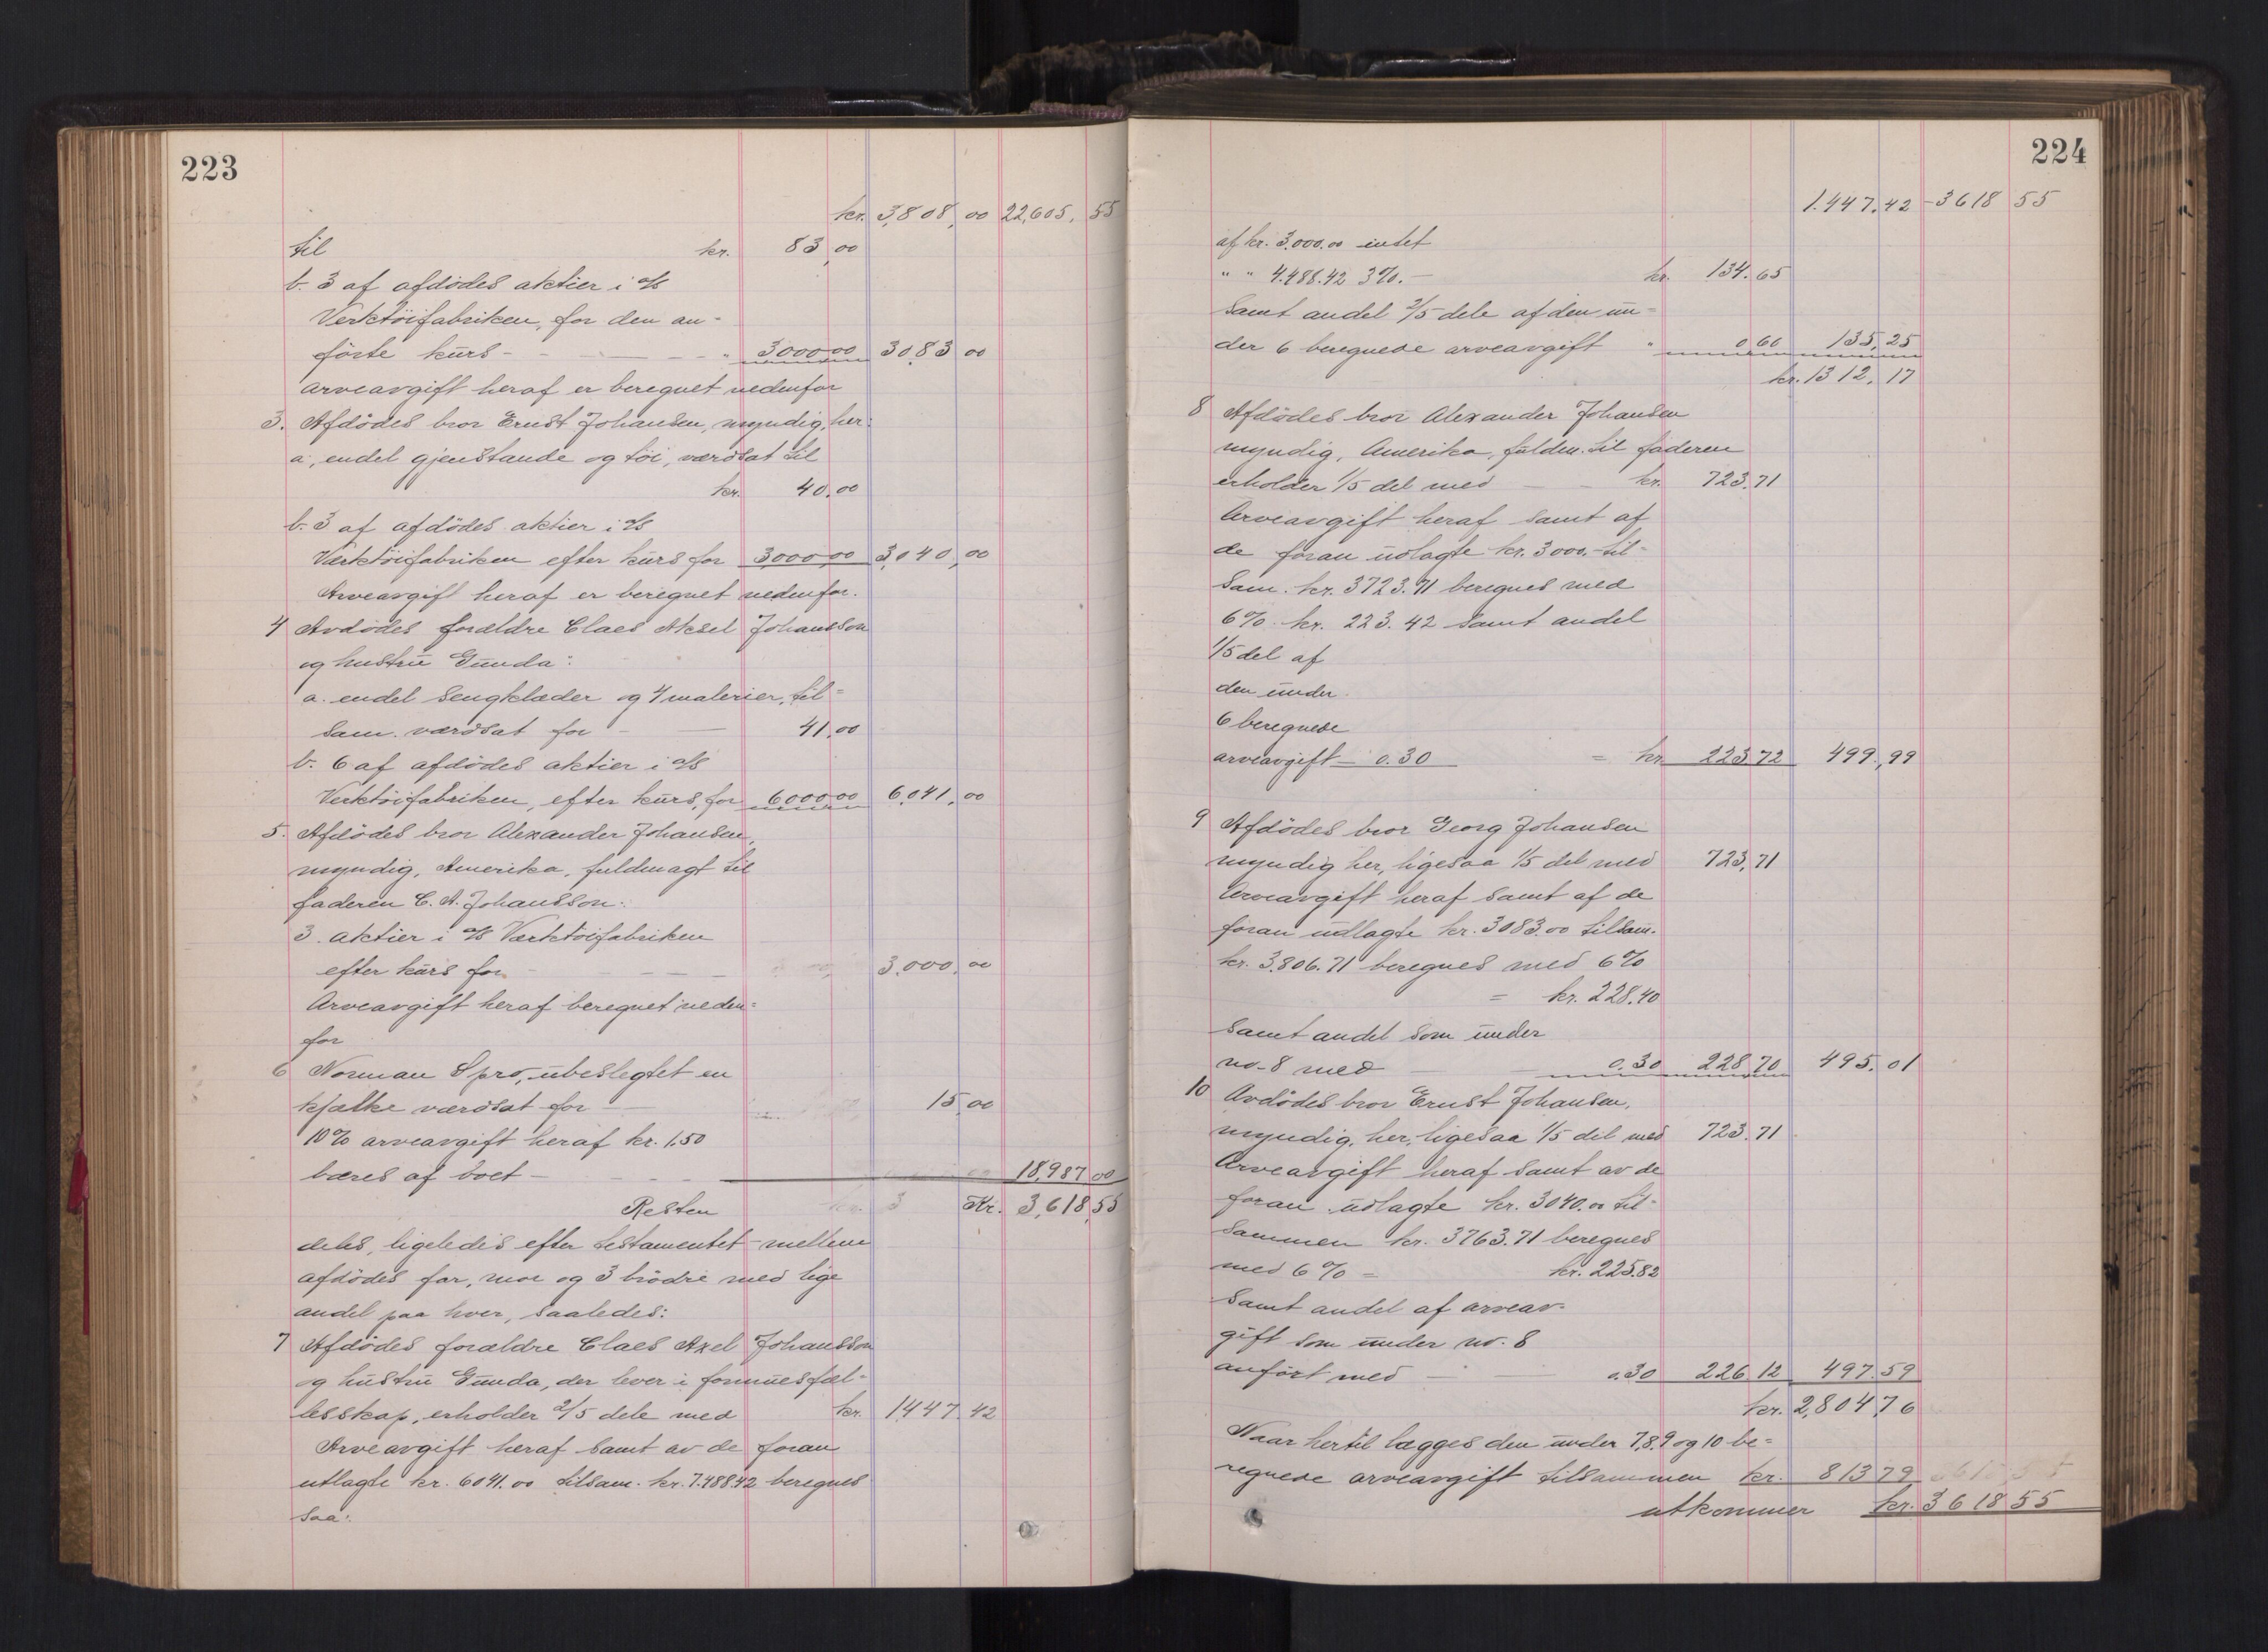 223
kr. 3,808,00 22,605,55
til kr. 83,00
b. 3 af afdödes aktier i A/S
Verktöifabriken, for den an-
förte kurs - " 3000 00 3083 00
arveavgift heraf er beregnet nedenfor
3. Afdödes bror Ernst Johansen, myndig, her:
a, endel gjenstande og töi, værdsat til
kr. 40,00
b. 3 af afdödes aktier i A/S
Værktöifabriken efter kurs for 3,000 00 3,040,00
Arveavgift heraf er beregnet nedenfor.
4 Avdödes forældre Claes Aksel Johansson
og hustru Gunda:
a. endel sengklæder og 4 malerier, til-
sam. værdsat for - 41,00
b. 6 af afdödes aktier i A/S
Verktöifabriken, efter kurs, for 6000 00 6,041,00
5. Afdödes bror Alexander Johansen,
myndig, Amerika, fuldmagt til
faderen C. A. Johansson:
3. aktier i A/S Værktöifabriken
efter kurs for - 3,000,00
Arveavgift heraf beregnet neden-
for
6 Norman Spro, ubeslegtet en
kjælke værdsat for - 15,00
10% arveavgift heraf kr. 1,50
bæres af boet - 18,987 00
Resten Kr. 3,618,55
deles, ligeledes efter testamentet - mellem
afdödes far, mor og 3 brödre med lige
andel paa hver, saaledes:
7 Afdödes forældre Claes Axel Johansson
og hustru Gunda, der lever i formuesfæl-
lesskap, erholder 2/5 dele med kr. 1,447.42
Arveavgift heraf samt av de foran
utlagte kr. 6041.00 tilsam. kr. 7.488.42 beregnes
saa:
224
1.447.42 - 3618 55
af kr. 3.000.00 intet
" " 4.488.42 3%. - kr. 134.65
Samt andel 2/5 dele af den un-
der 6 beregnede arveavgift " 0 60 135,25
kr. 1312,17
8 Afdödes bror Alexander Johansen
myndig, Amerika, fuldm. til faderen
erholder 1/5 del med - kr. 723.71
Arveavgift heraf samt af
de foran udlagte kr. 3000.- til-
sam. kr. 3723.71 beregnes med
6% kr. 223.42 samt andel
1/5 del af
den under
6 beregnede
arveavgift - 0.30 = kr. 223 72 499,99
9 Afdödes bror Georg Johansen
myndig her, ligesaa 1/5 del med 723,71
Arveavgift heraf samt af de
foran udlagte kr. 3083.00 tilsam.
kr. 3.806.71 beregnes med 6%
= kr. 228.40
Samt andel som under
no. 8 med - 0.30 228.70 495.01
10 Avdödes bror Ernst Johansen,
myndig, her, ligesaa 1/5 del med 723.71
Arveavgift heraf samt av de
foran udlagte kr. 3040.00 til-
sammen kr. 3763.71 beregnes
med 6% = kr. 225.82
Samt andel af arveav-
gift som under no. 8
anfört med - 0.30 226 12 497.59
kr. 2,804,76
Naar hertil lægges den under 7,8,9 og 10 be-
regnede arveavgift tilsammen kr. 813 79
utkommer kr. 3618 55